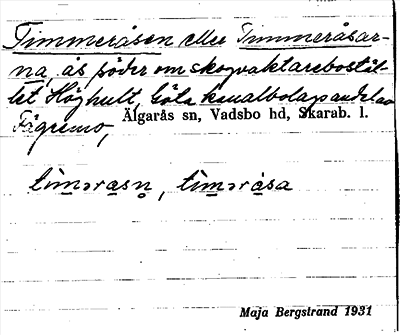 Timmeråsen eller Timmeråsar-
na, ås söder om skogvaktarebostäl-
let Höghult, Göta kanalbolags andel av
Fägremo,
Älgarås sn, Vadsbo hd, Skarab. l.
timərasn, timəråsa
Maja Bergstrand 1931